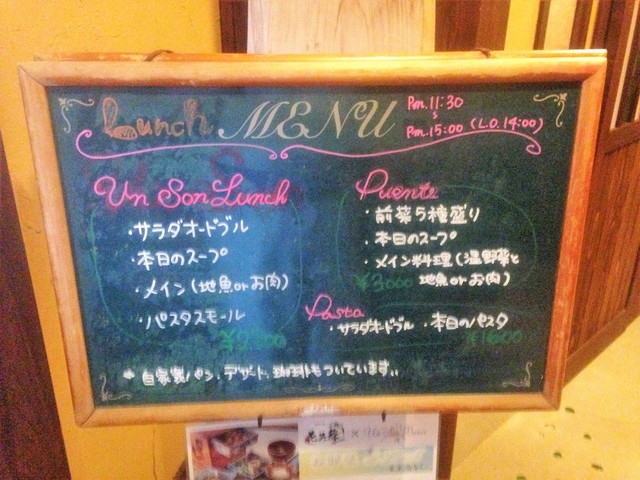 Lunch MENU
Pm. 11:30
〜
Pm. 15:00 (L.O. 14:00)
Un Son Lunch
・サラダオードブル
・本日のスープ
・メイン(地魚orお肉)
・パスタスモール
Puente
・前菜5種盛り
・本日のスープ
・メイン料理(温野菜と
地魚orお肉)
¥3000
Pasta
・サラダオードブル ・本日のパスタ
* 自家製パン、デザート、珈琲もついています。